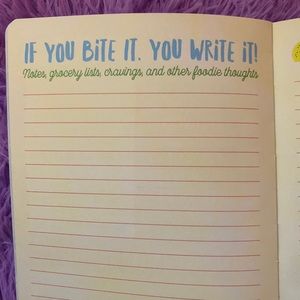 IF YOU BITE IT, YOU WRITE IT!
Notes, grocery lists, cravings, and other foodie thoughts